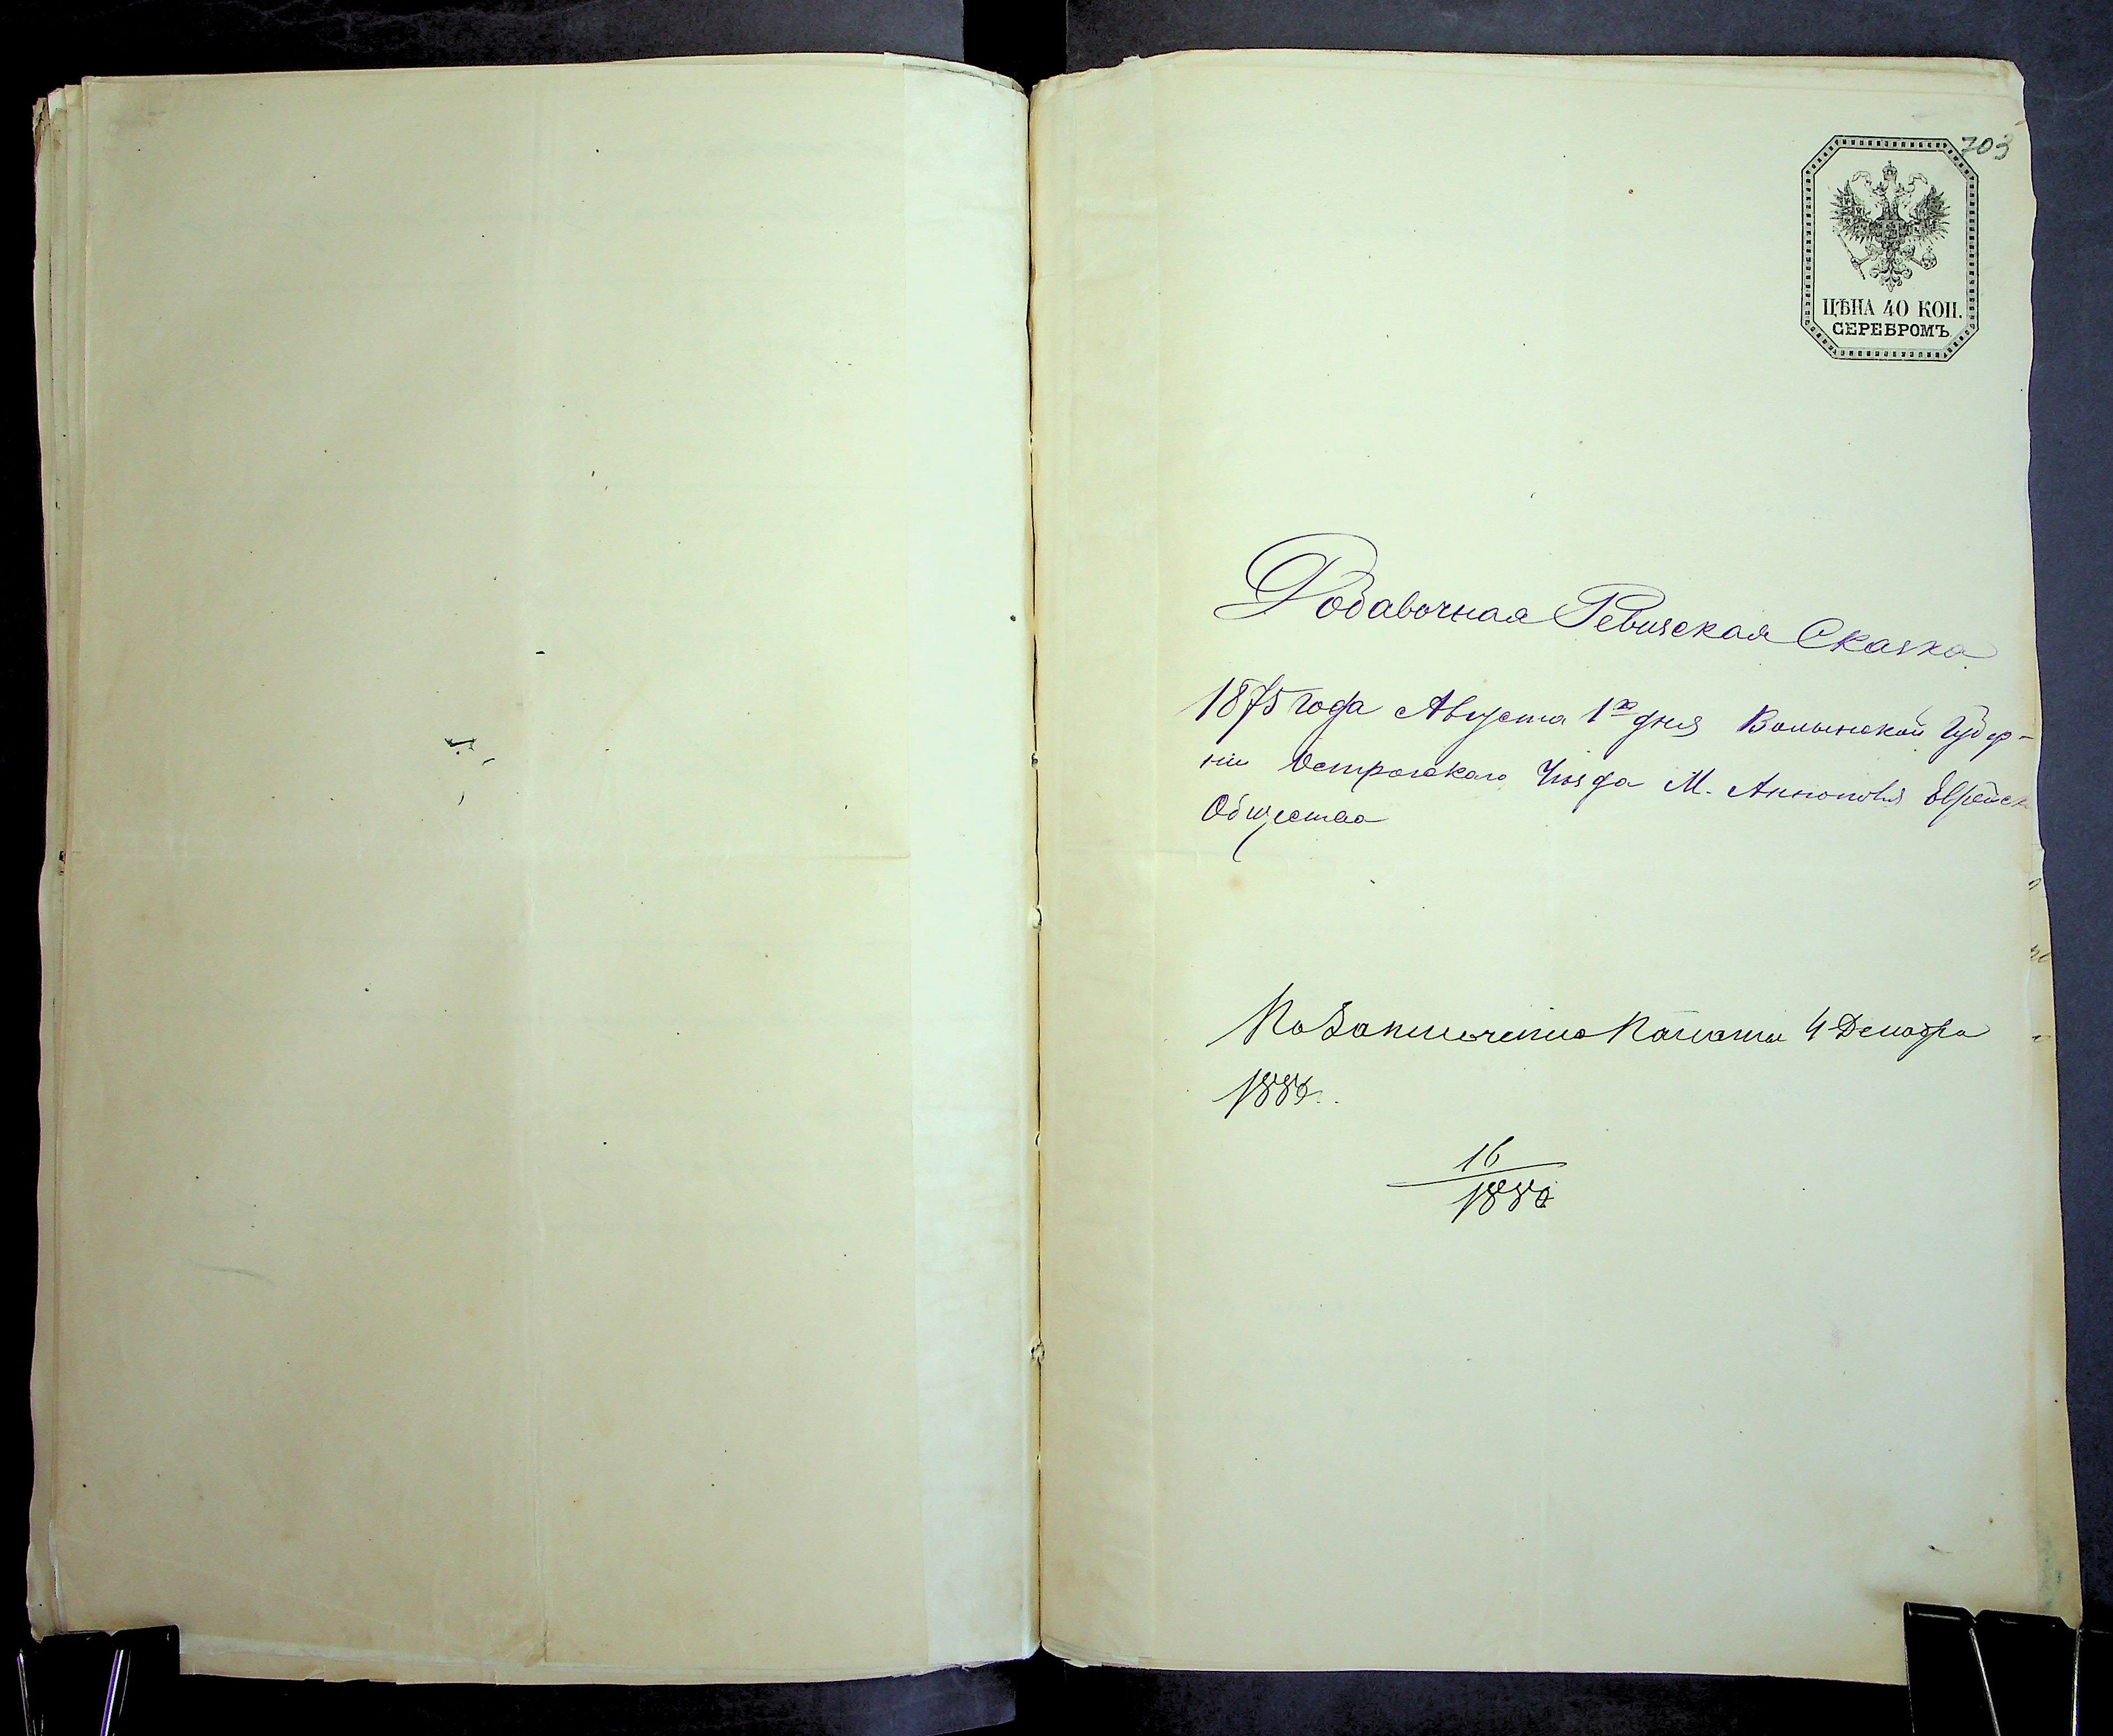 703
ЦѢНА 40 КОП.
СЕРЕБРОМЪ
Добавочная Ревизская Сказка
1875 года Августа 1го дня Волынской Губер-
ніи Острогского Уѣзда М. Аннополя Еврейск
Общества
По Заключенію Палаты 4 Декабря
16